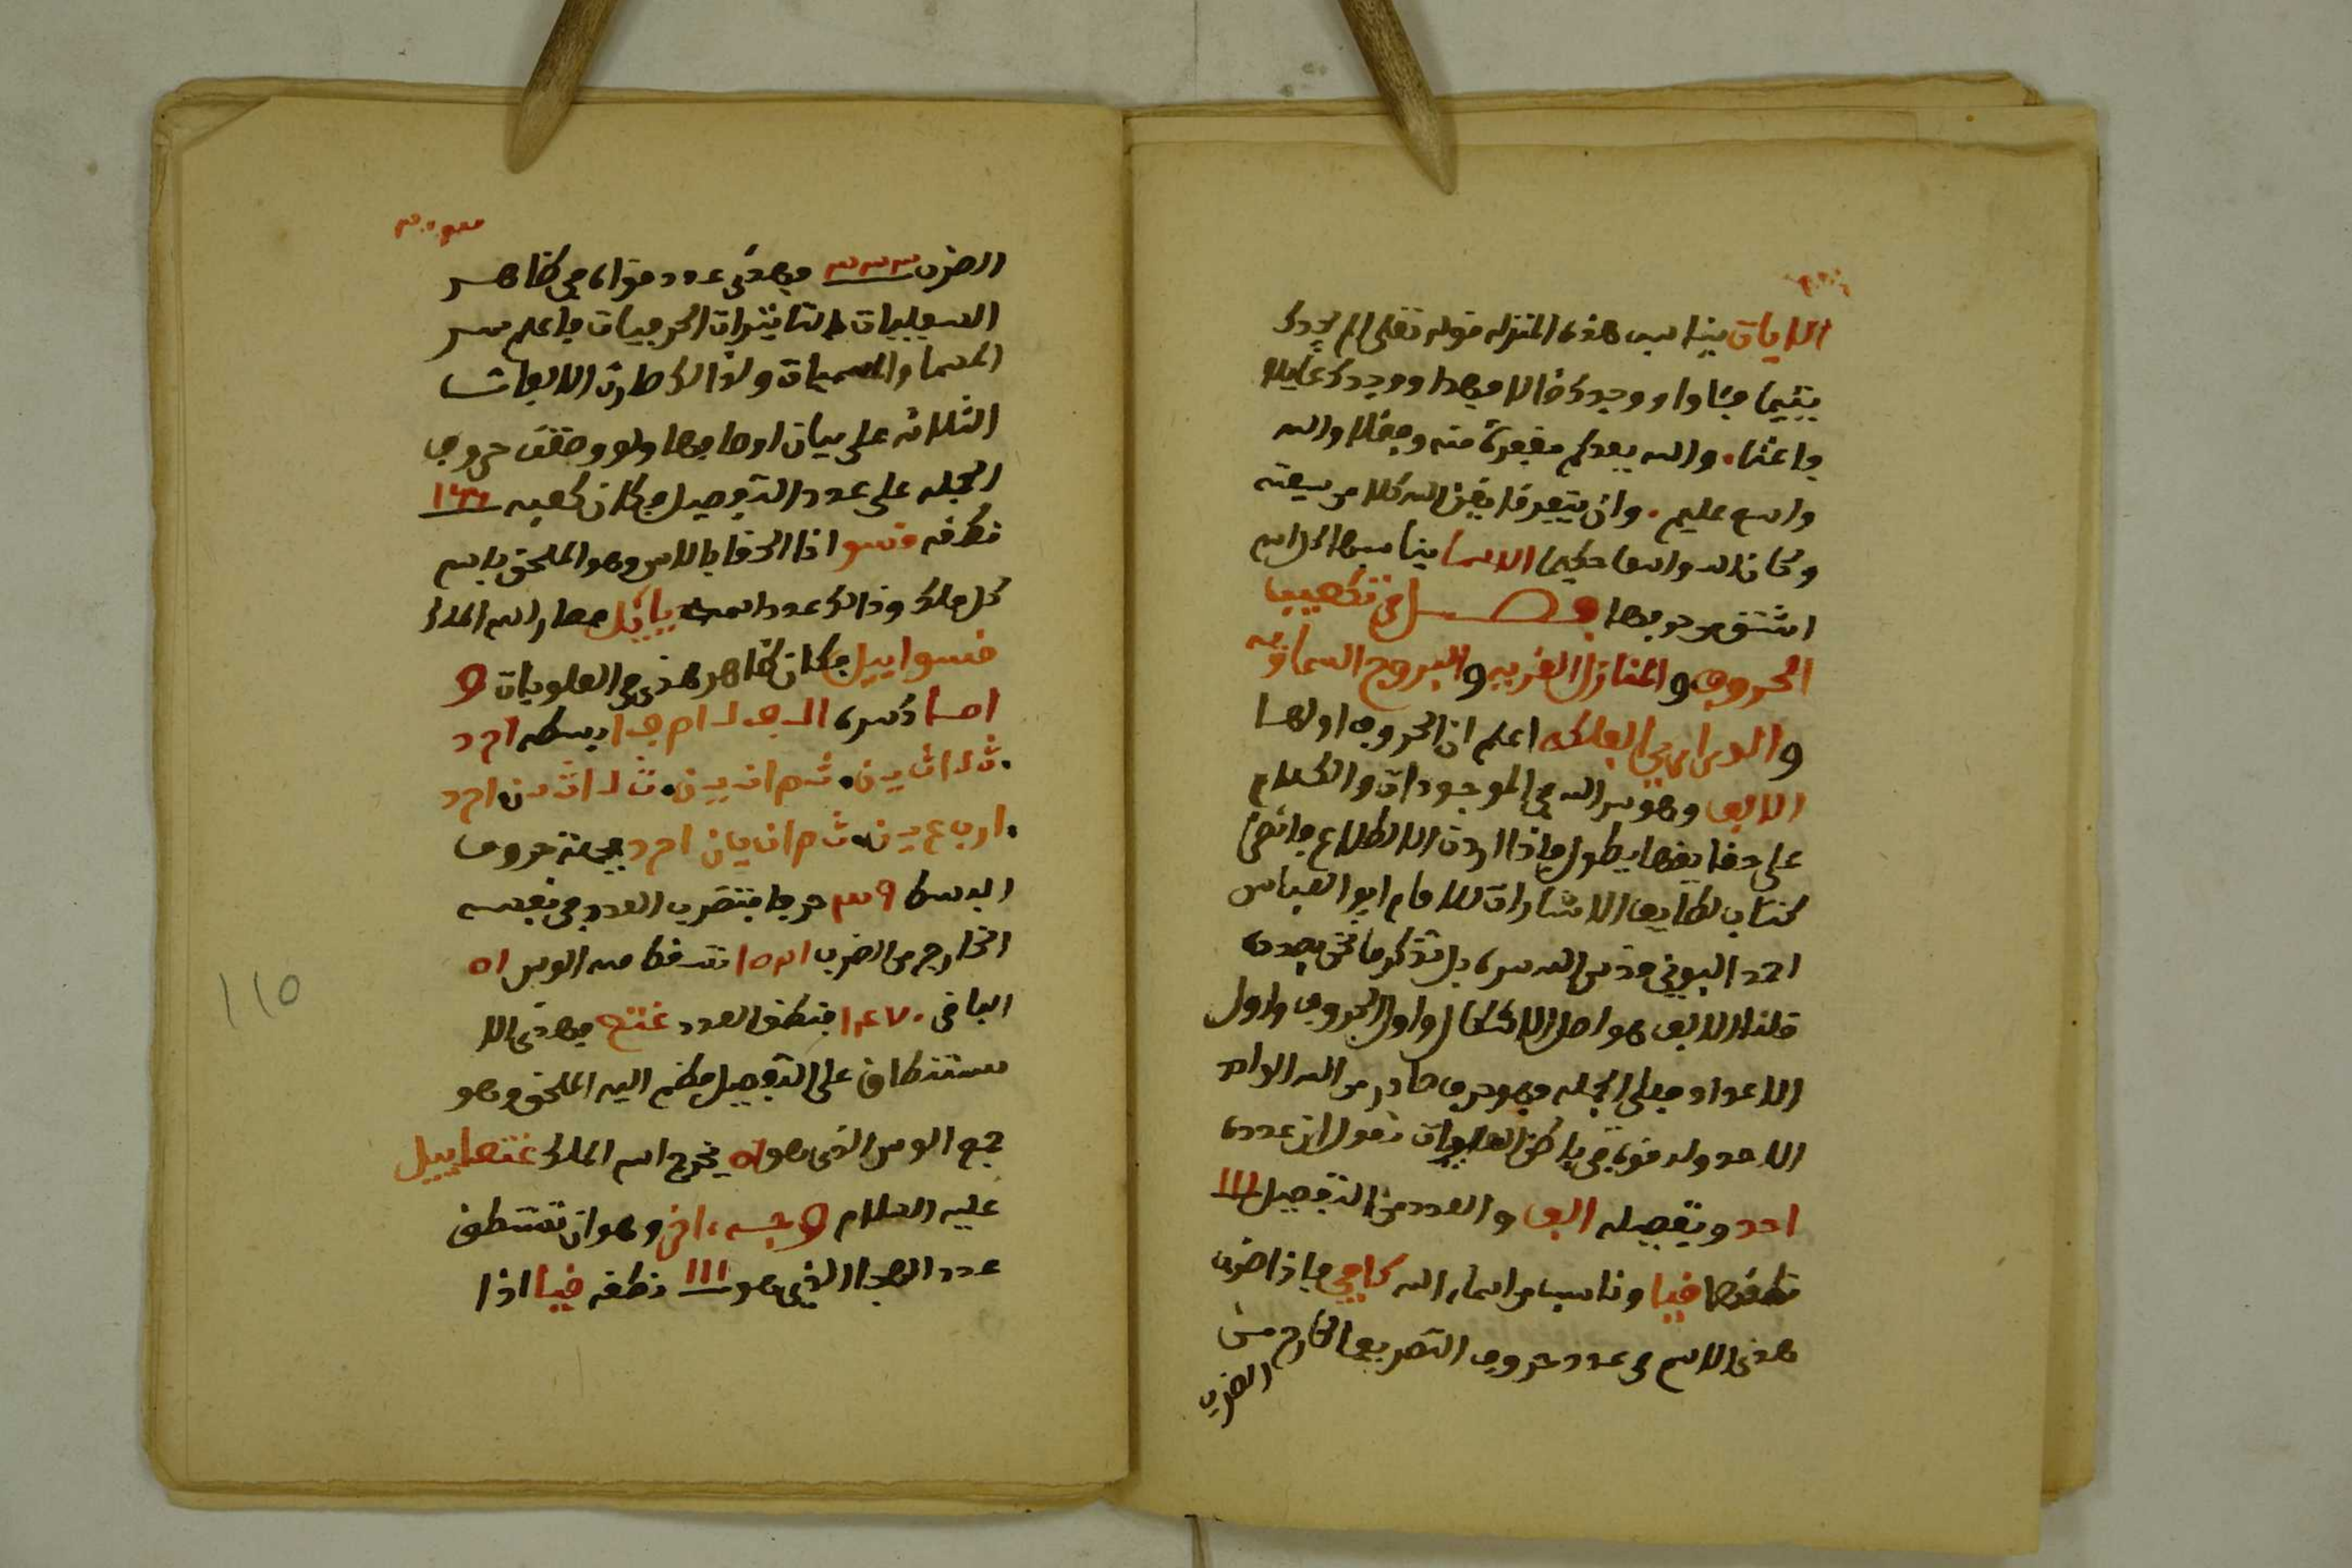 الايات يناسب هذه المنزله قوله تعلى الم يجدك
يتيما فئاوا ووجدك ضالا فهدا ووجدك عايلا
فاغنا. والله يعدكم مغفرة منه وفضلا والله
واسع عليم. وان يتفرقا يغن الله كلا من سعته
وكان الله واسعا حكيما الاسما يناسبها
اشتق من حروفها فصل في تكعيب
الحروف والمنازل القمريه والبروج السماويه
والدراري الفلكيه اعلم ان الحروف اولها
الالف وهو سر الله في الموجودات والكلام
على حقايقها يطول فاذا اردت الاطلاع فانظر
كتاب لطايف الاشارات للامام ابو العباس
احمد البوني قدس الله سره بل نذكر ما نحن بصدده
قلنا الالف هو اصل الاشكال واول الحروف واول
الاعداد فعلى الجمله فهو حرف صادر من الله الواحد
الاحد وله قوة في باطن العلويات نقول ان عدده
احد وتفصيله الف والعدد من التفصيل ١١١
نطقها فيا وناسب من اسماء الله كافي فاذا ضرب
هذا الاسم في عدد حروف التصريف الخارج من
الضرب
الضرب ٣٣٣ فهذى عدد قواه في ظاهر
السفليات والتاثيرات الحرفيات فاعلم سر
المسما والمسميات ولذالك صارت الالفات
الثلاثه على بيان اوصافها ولو وقفت حروف
الجمله على عدد التفصيل فكان كعبه ١٣٦
نطقه قسو اذا الحقا بالاس وهو الملحق باسم
كل ملك وذالك عدد ياييل فصار اسم الملك
قسواييل فكان ظاهر هذى في العلويات و
اما كسره ال ف ل ا م ف ا بسطه ا ح د
. ث ل ا ث ي ن . ث م ا ن ي ن . ث ل ا ث ي ن ا ح د
. ا ر ب ع ي ن . ث م ا ن ي ن ا ح د فجملة حروف
البسط ٣٩ حرفا فتضرب العدد في نفسه
الخارج من الضرب ١٥٢١ تسقط منه الوس ٥١
الباقي ١٤٧٠ فنطق العدد غتع فهذى الا
ستنطاق على التفصيل فظم اليه الملحق وهو
جمع الوس الذي هو ٥١ يخرج اسم الملك غتعاييل
عليه السلام وجه ءاخر وهو ان تستنطق
عدد الهجا الذي هو ١١١ نطقه فيا اذا
١١٥